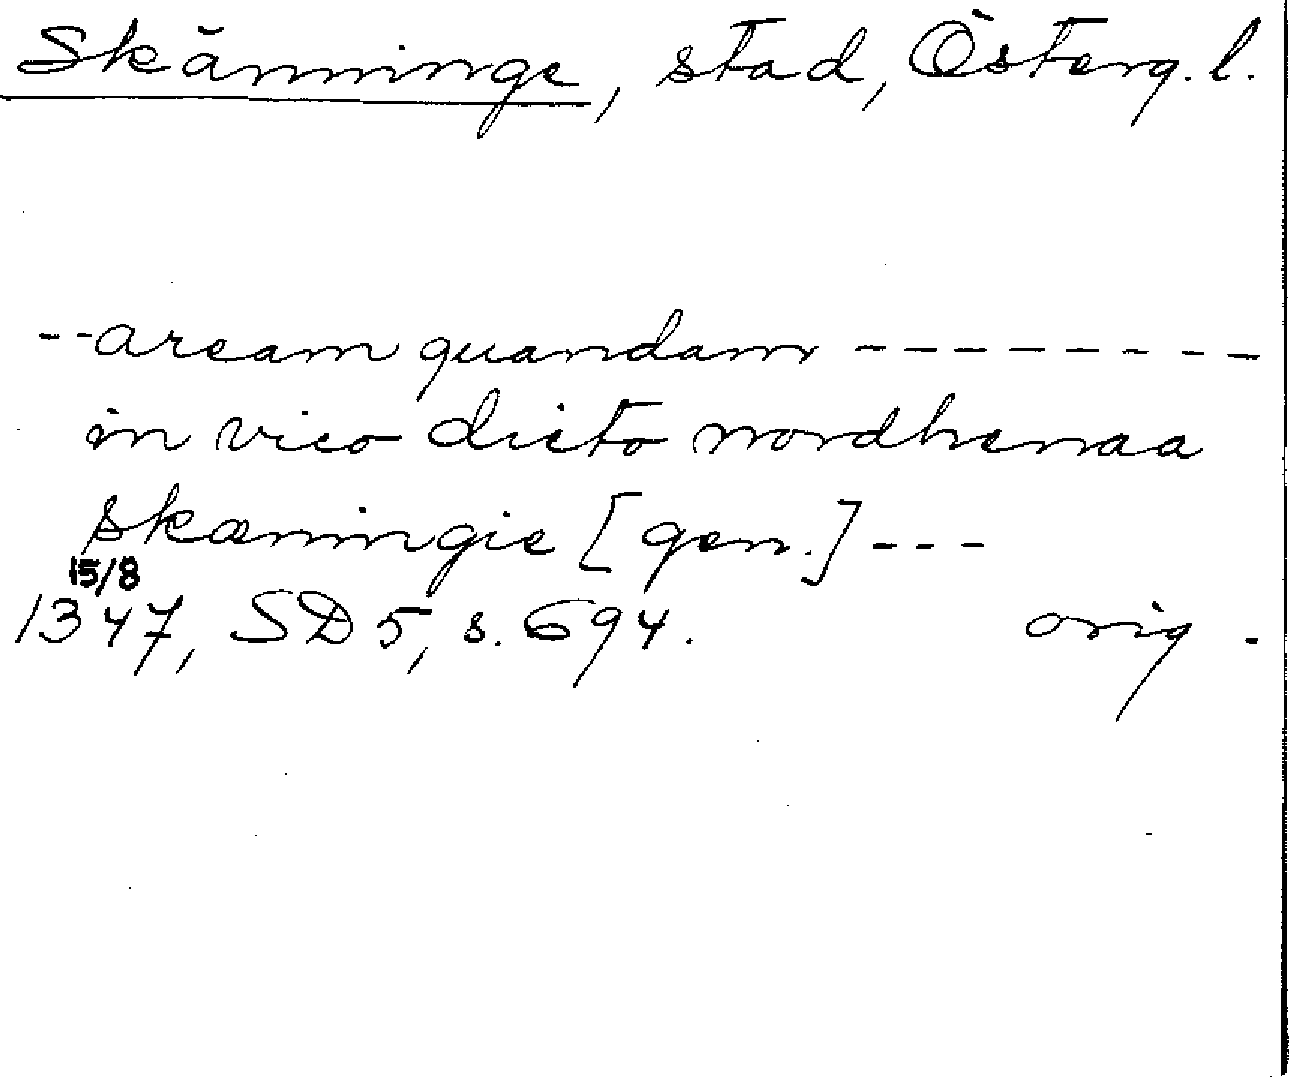 Skänninge, stad, Österg. l.
--aream quandam --------
in vico dicto nordhenaa
skæningie [gen.] ---
15/8
1347, SD 5, s. 694. orig.